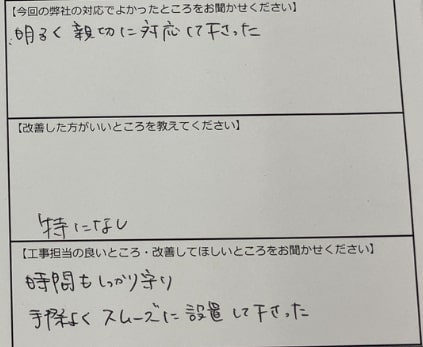 【今回の弊社の対応でよかったところをお聞かせください】
明るく親切に対応して下さった
【改善した方がいいところを教えてください】
特になし
【工事担当の良いところ・改善してほしいところをお聞かせください】
時間もしっかり守り
手際よくスムーズに設置して下さった